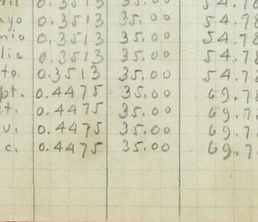 0.3513 35.00 54.78
yo 0.3513 35.00 54.78
nio 0.3513 35.00 54.78
lio 0.3513 35.00 54.78
to. 0.3513 35.00 54.78
pt. 0.4475 35.00 69.78
t. 0.4475 35.00 69.78
v. 0.4475 35.00 69.78
c. 0.4475 35.00 69.78